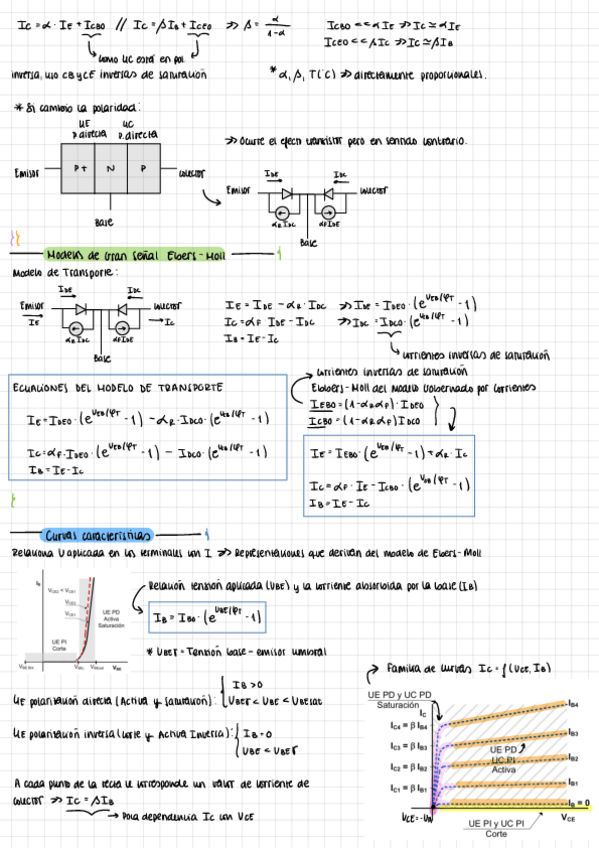 Ic = α · IE + ICBO // Ic = βIB + ICEO ⋙ β = α/(1-α)
ICBO <<< αIE ⋙ Ic ≃ αIE
ICEO << βIc ⋙ Ic ≃ βIB
como UC está en pol.
inversa, uso CB y CE inversas de saturación
* α, β, T(°C) ⋙ directamente proporcionales.
* Si cambio la polaridad:
UE UC
P. directa P. directa
⋙ Ocurre el efecto transistor pero en sentido contrario.
Emisor P+ N P colector
Base
IDE IDC
Emisor colector
αR IDC αF IDE
Base
Modelos de Gran Señal Ebers-Moll
Modelo de Transporte:
IDE IDC
Emisor colector
IE Ic
αR IDC αF IDE
Base
IE = IDE - αR · IDC ⋙ IDE = IDEO · (e^(VEB/φT) - 1)
Ic = αF · IDE - IDC ⋙ IDC = IDCO · (e^(VCB/φT) - 1)
IB = IE - Ic
corrientes inversas de saturación
ECUACIONES DEL MODELO DE TRANSPORTE
IE = IDEO · (e^(VEB/φT) - 1) - αR · IDCO · (e^(VCB/φT) - 1)
Ic = αF · IDEO · (e^(VEB/φT) - 1) - IDCO · (e^(VCB/φT) - 1)
IB = IE - Ic
corrientes inversas de saturación
Ebbers-Moll del modelo Gobernado por corrientes
IEBO = (1 - αRαF) · IDEO
ICBO = (1 - αRαF) IDCO
IE = IEBO · (e^(VEB/φT) - 1) + αR · Ic
Ic = αF · IE - ICBO · (e^(VCB/φT) - 1)
IB = IE - Ic
Curvas características
Relaciona U aplicada en los terminales con I ⋙ Representaciones que derivan del modelo de Ebers-Moll
IB
UE PD
Activa
Saturación
UE PI
Corte
VBE
Relación tensión aplicada (UBE) y la corriente absorbida por la base (IB)
IB = IBO · (e^(UBE/φT) - 1)
* UBEγ = Tensión base-emisor umbral
UE polarización directa (Activa y saturación): { IB > 0
UBEγ < UBE < UBEsat
UE polarización inversa (corte y Activa Inversa): { IB = 0
UBE < UBEγ
A cada punto de la recta le corresponde un valor de corriente de
colector ⋙ Ic = βIB
Poca dependencia Ic con VCE
Familia de curvas Ic = f(VCE, IB)
UE PD y UC PD
Saturación
IC
IC4 = β IB4
IC3 = β IB3
IC2 = β IB2
IC1 = β IB1
IB4
IB3
IB2
IB1
IB = 0
UE PD
UC PI
Activa
VCE
UE PI y UC PI
Corte